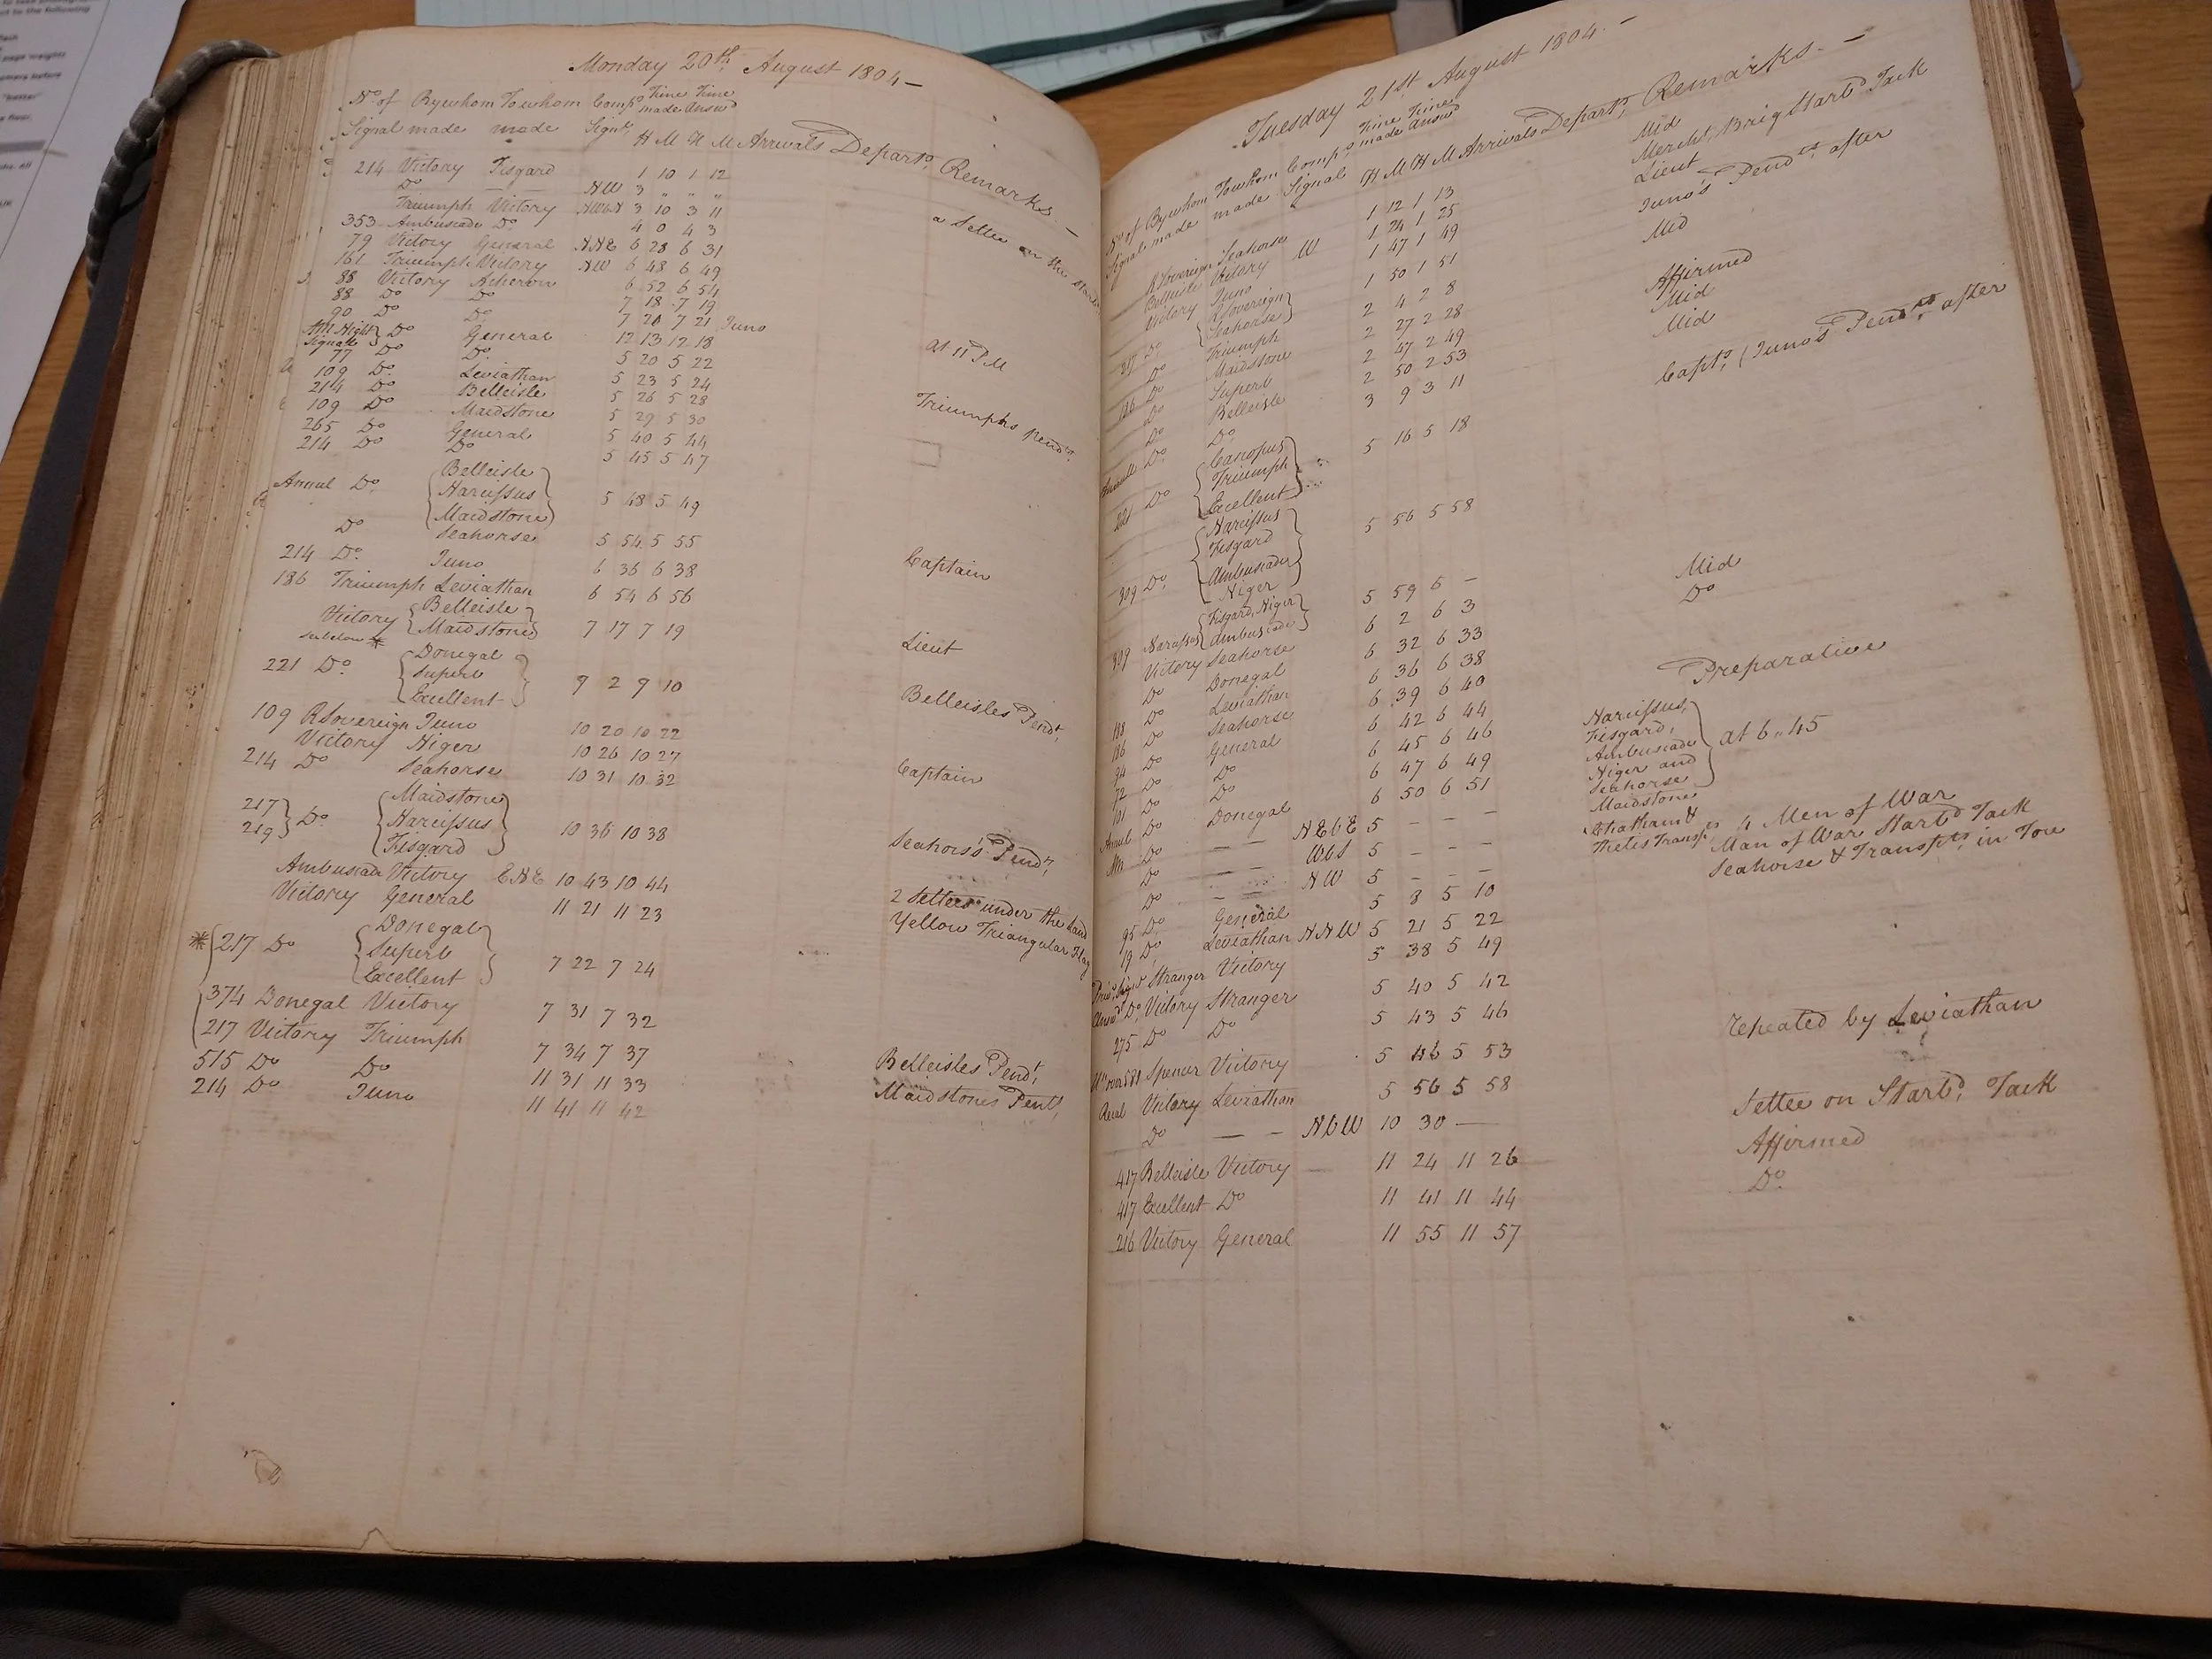 Monday 20th August 1804 —
No. of Bywhom Towhom Comps. Time made Time Answd
Signal made made Signl. H M H M Arrivals Departs. Remarks. —
214 Victory Fisgard 1 10 1 12
Do NW 3 " " "
Triumph Victory NWbN 3 10 3 11 a Settee on the Starb
353 Ambuscade Do 4 0 4 3
79 Victory General NNE 6 28 6 31
161 Triumph Victory NW 6 48 6 49
88 Victory Acheron 6 52 6 54
88 Do Do 7 18 7 19
90 Do Do 7 20 7 21 Juno
Night Signals Do General 12 13 12 18 at 11 PM
77 Do Do. 5 20 5 22
109 Do Leviathan 5 23 5 24
214 Do Belleisle 5 26 5 28 Triumphs pendts.
109 Do Maidstone 5 29 5 30
265 Do General 5 40 5 44
214 Do Do 5 45 5 47
Belleisle
Annul Do Narcissus 5 48 5 49
Maidstone
Do Seahorse 5 54 5 55
214 Do. Juno 6 36 6 38 Captain
186 Triumph Leviathan 6 54 6 56
Victory Belleisle
see below * Maidstone 7 17 7 19 Lieut
Donegal
221 Do. Superb 9 2 9 10 Belleisles Pendt.
Excellent
109 RSovereign Juno 10 20 10 22
Victory Niger 10 26 10 27 Captain
214 Do Seahorse 10 31 10 32
217 Maidstone
219 Do Narcissus 10 36 10 38 Seahors's Pendt,
Fisgard
Ambuscade Victory ENE 10 43 10 44 2 Settees under the Land
Victory General 11 21 11 23 Yellow Triangular Flag
Donegal
* 217 Do Superb 7 22 7 24
Excellent
374 Donegal Victory 7 31 7 32
217 Victory Triumph 7 34 7 37
515 Do Do 11 31 11 33 Belleisles Pendt,
214 Do Juno 11 41 11 42 Maidstones Pent,
Tuesday 21st August 1804. —
No. of Bywhom Towhom Comps. Time made Time Answd
Signal made made Signal H M H M Arrivals Depart, Remarks. —
RSovereign Seahorse 1 12 1 13 Mid
Belleisle Victory W 1 24 1 25 Mercht, Brig Starbd Tack
Victory Juno 1 47 1 49 Lieut
Do RSovereign Seahorse 1 50 1 51 Juno's Pendts. after
Do Triumph 2 4 2 8 Mid
Do Maidstone 2 27 2 28 Affirmed
Do Superb 2 47 2 49 Mid
Do Belleisle 2 50 2 53 Mid
Annull Do Do 3 9 3 11 Capts. (Juno's Pendts. after
Canopus
221 Do Triumph 5 16 5 18
Excellent
Narcissus
Fisgard
309 Do. Ambuscade 5 56 5 58
Niger
309 Narcissus Fisgard, Niger Ambuscade 5 59 6 —
Victory Seahorse 6 2 6 3 Mid
Do Donegal 6 32 6 33 Do
188 Do Leviathan 6 36 6 38
186 Do Seahorse 6 39 6 40
94 Do General 6 42 6 44 Preparative
72 Do Do 6 45 6 46 Narcissus, Fisgard, Ambuscade Niger and Seahorse at 6..45
101 Do Do 6 47 6 49
Annul Do Donegal 6 50 6 51 Maidstone
Do — — NEbE 5 — — — Chatham & Thetis Transpts 4 Men of War
Do — — WbS 5 — — — Man of War Starbd Tack
Do — — NW 5 — — — Seahorse & Transpts in Tow
95 Do. General 5 8 5 10
19 Do. Leviathan NNW 5 21 5 22
Stranger Victory 5 38 5 49
Do. Victory Stranger 5 40 5 42
275 Do Do 5 43 5 46 repeated by Leviathan
Spencer Victory 5 46 5 53
Recal Victory Leviathan 5 56 5 58
Do — — NbW 10 30 — Settee on Starbd, Tack
417 Belleisle Victory — 11 24 11 26 Affirmed
417 Excellent Do 11 41 11 44 Do.
216 Victory General 11 55 11 57